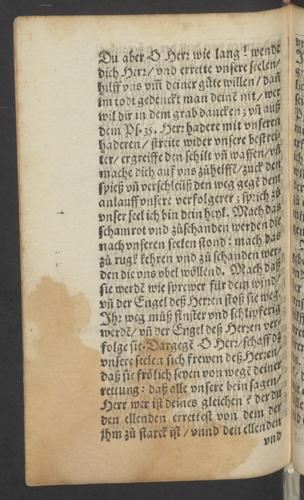 Du aber O Herr wie lang! wende
dich Herr/ vnd errette vnsere seelen/
hilff vns vm̃ deiner güte willen/ dañ
im todt gedenckt man deinẽ nit/ wer
wil dir in dem grab dancken? vñ auß
dem Ps. 35. Herr hadere mit vnseren
haderen/ streite wider vnsere bestrei-
ter/ ergreiffe den schilt vñ waffen/ vñ
mache dich auf vns zůhelffẽ/ zuck den
spieß vñ verschleüß den weg gegẽ dem
anlauff vnsere verfolgerer: sprich zů
vnser seel ich bin dein heyl. Mach das
schamrot vnd zůschanden werden die
nach vnseren seelen stond: mach das
zů rugk kehren vnd zů schanden wer-
den die vns vbel wöllend. Mach daß
sie werdẽ wie sprewer für dem wind/
vñ der Engel deß Herren stoß sie weg.
Ihr weg můß finster vnd schlipferig
werdẽ/ vñ der Engel deß Herren ver-
folge sie. Dargegẽ O Herr/ schaff dz
vnsere seelen sich frewen deß Herren/
daß sie frölich seyen von wegẽ deiner
rettung: daß alle vnsere bein sagen/
Herr wer ist deines gleichen? der du
den ellenden errettest von dem der
ihm zů starck ist/ vnnd den ellenden
vnd